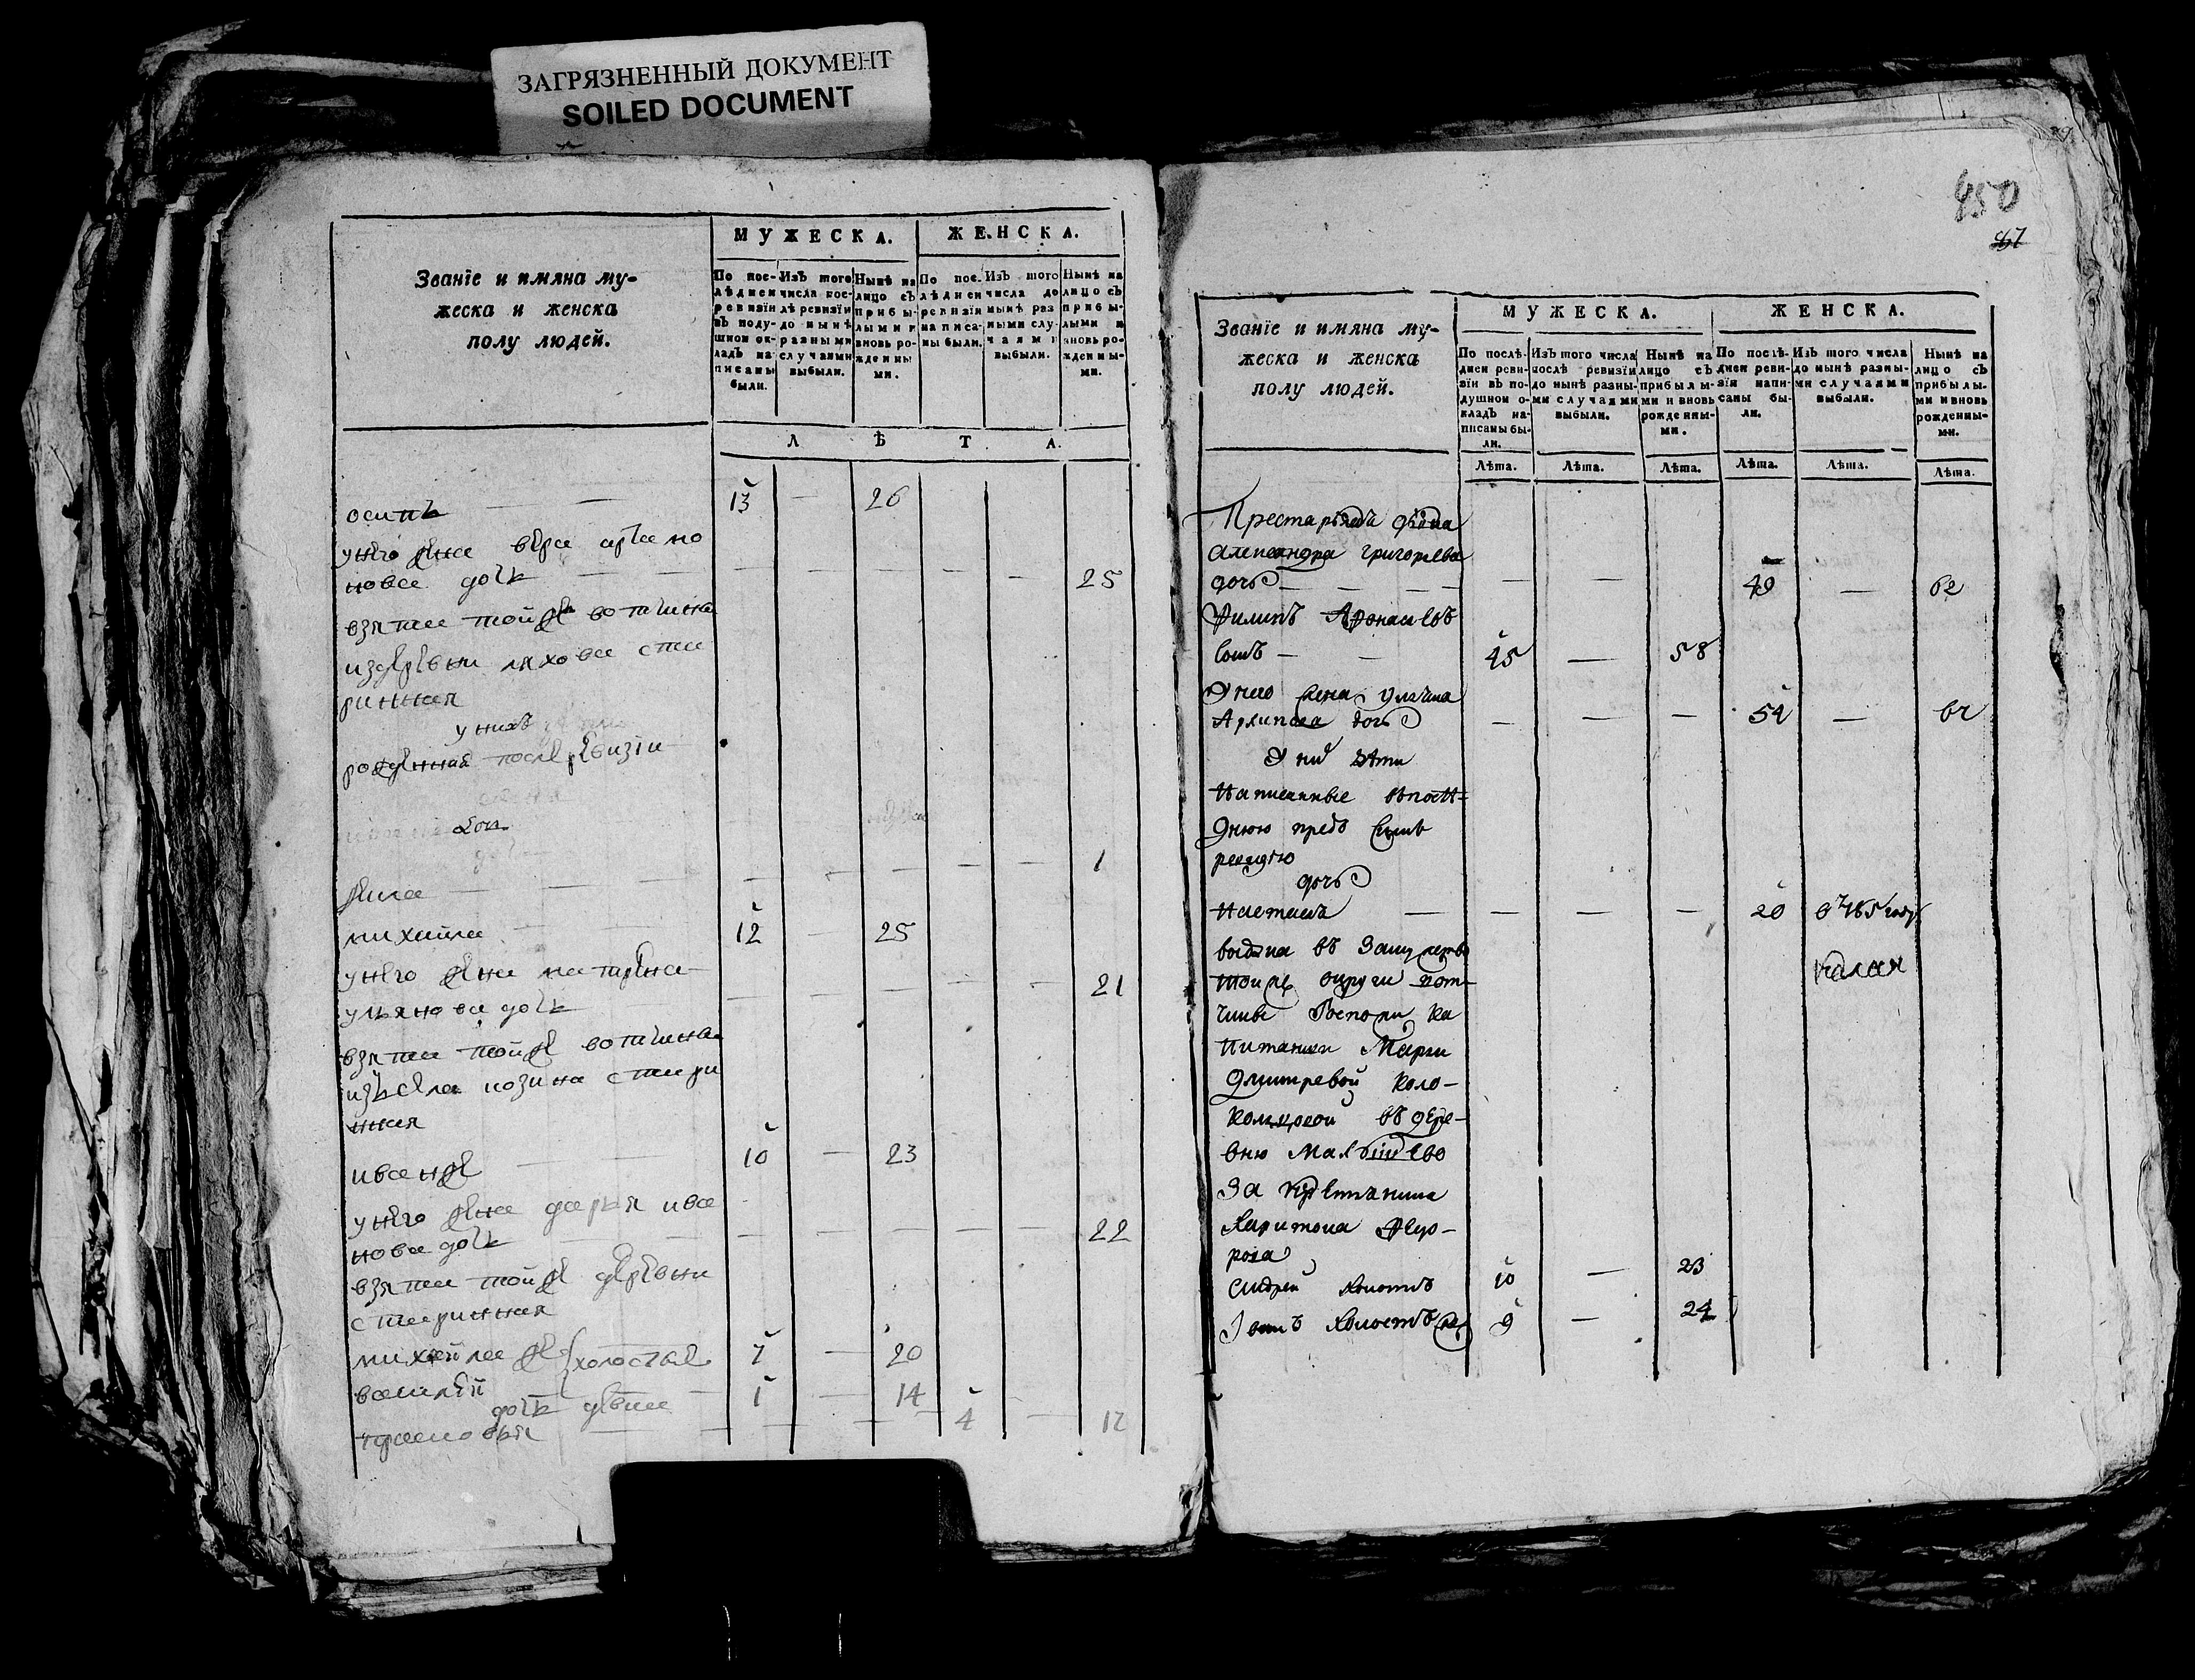 ЗАГРЯЗНЕННЫЙ ДОКУМЕНТ
SOILED DOCUMENT
МУЖЕСКА. ЖЕНСКА.
Званїе и имяна му-
жеска и женска
полу людей.
По послѣднеи ревизїи въ подушном окладъ написаны были.
Изъ того числа послѣ ревизїи до нынѣ разными случаями выбыли.
Нынѣ на лицо съ прибылыми и вновь рожденными.
По послѣднеи ревизїи написаны были.
Изъ того числа до нынѣ разными случаями выбыли.
Нынѣ на лицо съ прибылыми и вновь рожденными.
Л Ѣ Т А.
осипъ — 13 — 26
у него жена вера артамо
нова дочь — 25
взятая тойже вотчины
издеревни ляховы ста
ринная
у нихъ
рожденная после ревизiи
дочь
— 1
михаила 12 — 25
у него жена матрена
ульянова дочь — 21
взятая тойже вотчины
изъ села козина стари
нная
иванже — 10 — 23
у него жена дарья ива
нова дочь — 22
взятая тойже деревни
старинная
михайлаже холостые 7 — 20
василей 1 — 14
дочь девка
прасковья — 4 — 17
450
МУЖЕСКА. ЖЕНСКА.
Званїе и имяна му-
жеска и женска
полу людей.
По послѣднеи ревизїи въ подушном окладъ написаны были.
Изъ того числа послѣ ревизїи до нынѣ разными случаями выбыли.
Нынѣ на лицо съ прибылыми и вновь рожденными.
По послѣднеи ревизїи написаны были.
Изъ того числа до нынѣ разными случаями выбыли.
Нынѣ на лицо съ прибылыми и вновь рожденными.
Лѣта. Лѣта. Лѣта. Лѣта. Лѣта. Лѣта.
александра григорьева
дочь — 49 — 62
Филипъ Афонасьевъ
сынъ — 45 — 58
У него жена улияна
Архипова дочь — 54 — 67
У них дѣти
написанные въпослѣ-
днюю предъ симъ
ревизию
дочь
Наталья — 20 в 1785 году
выдана въ замужство
тойже округи вот-
чины Госпожи ка
питанши Марьи
Дмитревой коло-
кольцовой въ дере-
вню Малышево
За крестьянина
Харитона Федо-
рова
Андрей холостъ 10 — 23
Iванъ холостъже 9 — 24